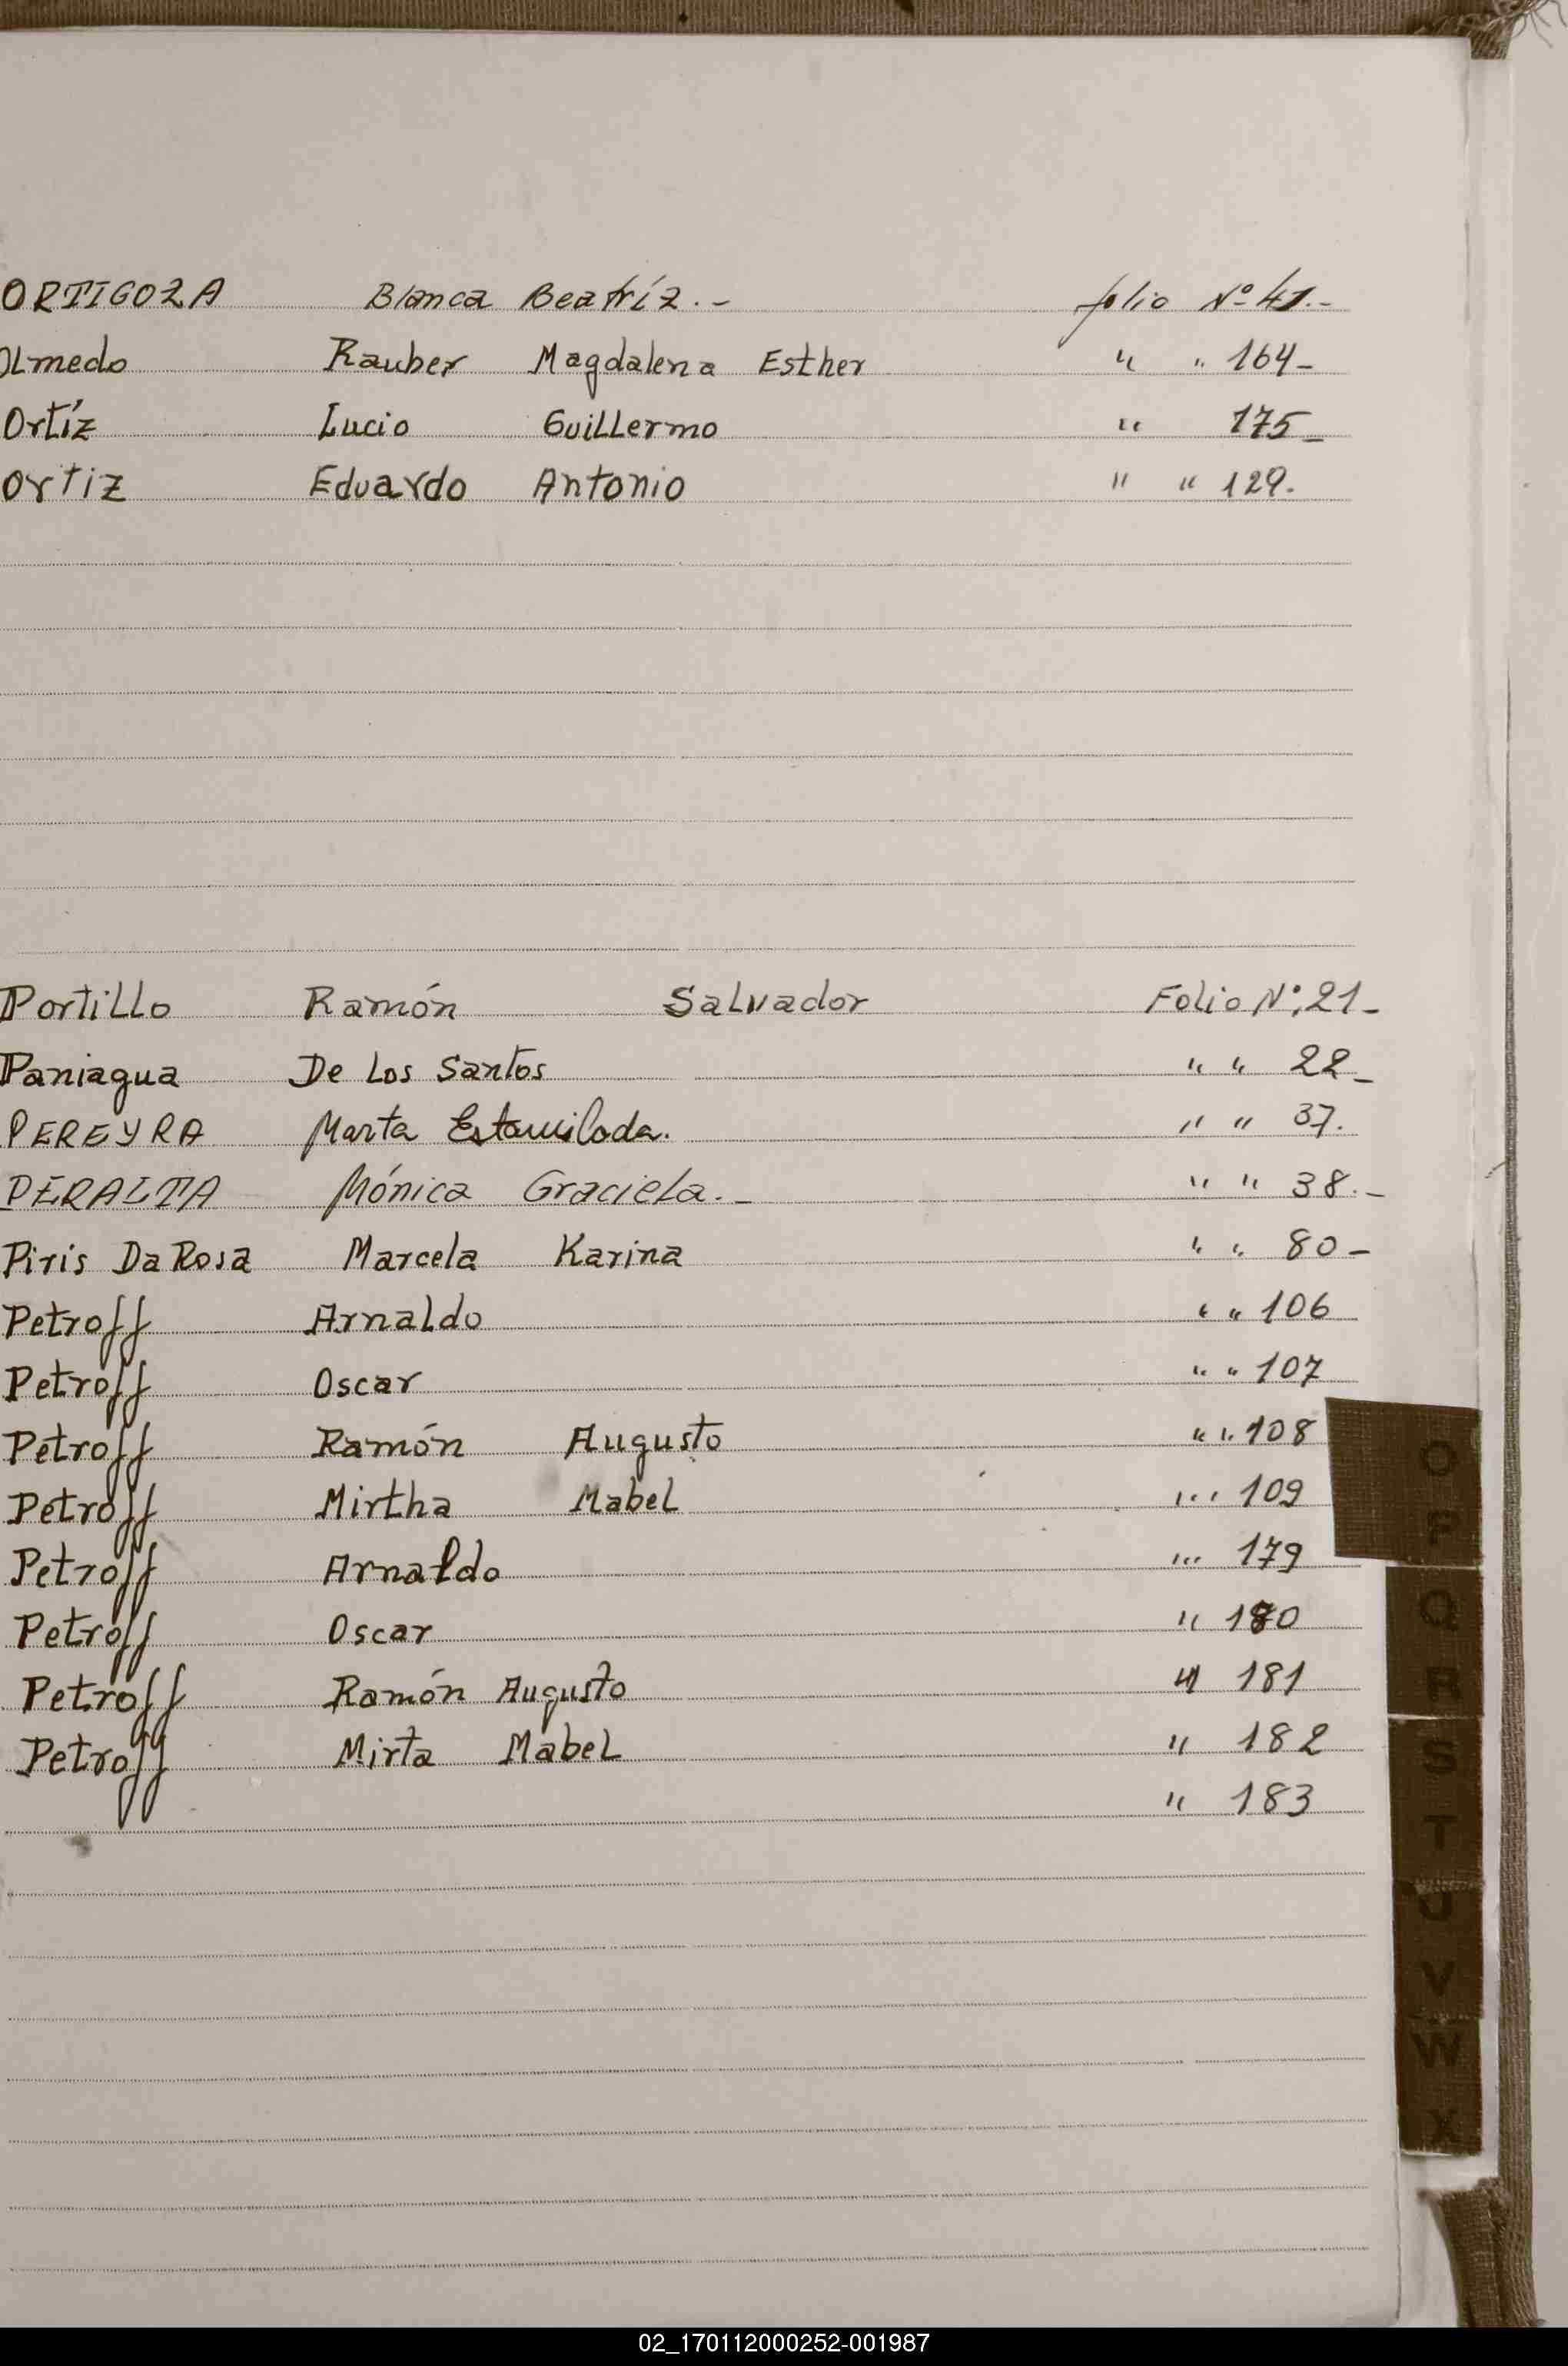 ORTIGOZA Blanca Beatríz.- folio Nº 41.-
Olmedo Rauber Magdalena Esther " " 164-
Ortíz Lucio Guillermo " 175-
Ortiz Eduardo Antonio " " 129.
Portillo Ramón Salvador Folio Nº: 21-
Paniagua De Los Santos " " 22-
PEREYRA Marta " " 37.
PERALTA Mónica Graciela.- " " 38.-
Piris Da Rosa Marcela Karina " " 80-
Petroff Arnaldo " " 106
Petroff Oscar " " 107
Petroff Ramón Augusto " " 108
Petroff Mirtha Mabel " " 109
Petroff Arnaldo " 179
Petroff Oscar " 180
Petroff Ramón Augusto " 181
Petroff Mirta Mabel " 182
" 183
O
P
Q
R
S
T
U
V
W
X
02_170112000252-001987